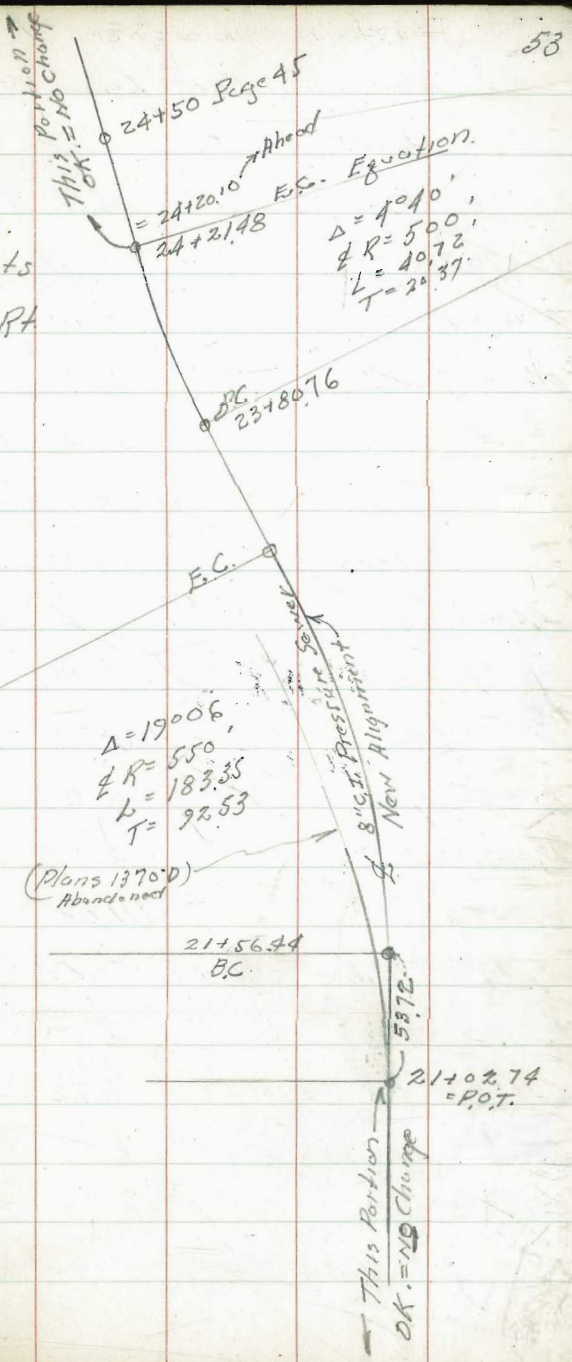 53
This Portion
OK. = No Change
24+50 Page 45
= 24+20.10 Ahead
24+21.48
E.C. Equation.
Δ = 4°40'
₵ R = 500'
L = 40.72
T = 20.37
ts
Rt.
B.C.
23+80.76
E.C.
8" C.I. Pressure Sewer
₵ New Alignment
Δ = 19°06'
₵ R = 550'
L = 183.35
T = 92.53
(Plans 1370-D)
Abandoned
21+56.44
B.C.
53.72
21+02.74
= P.O.T.
This Portion
OK. = No Change